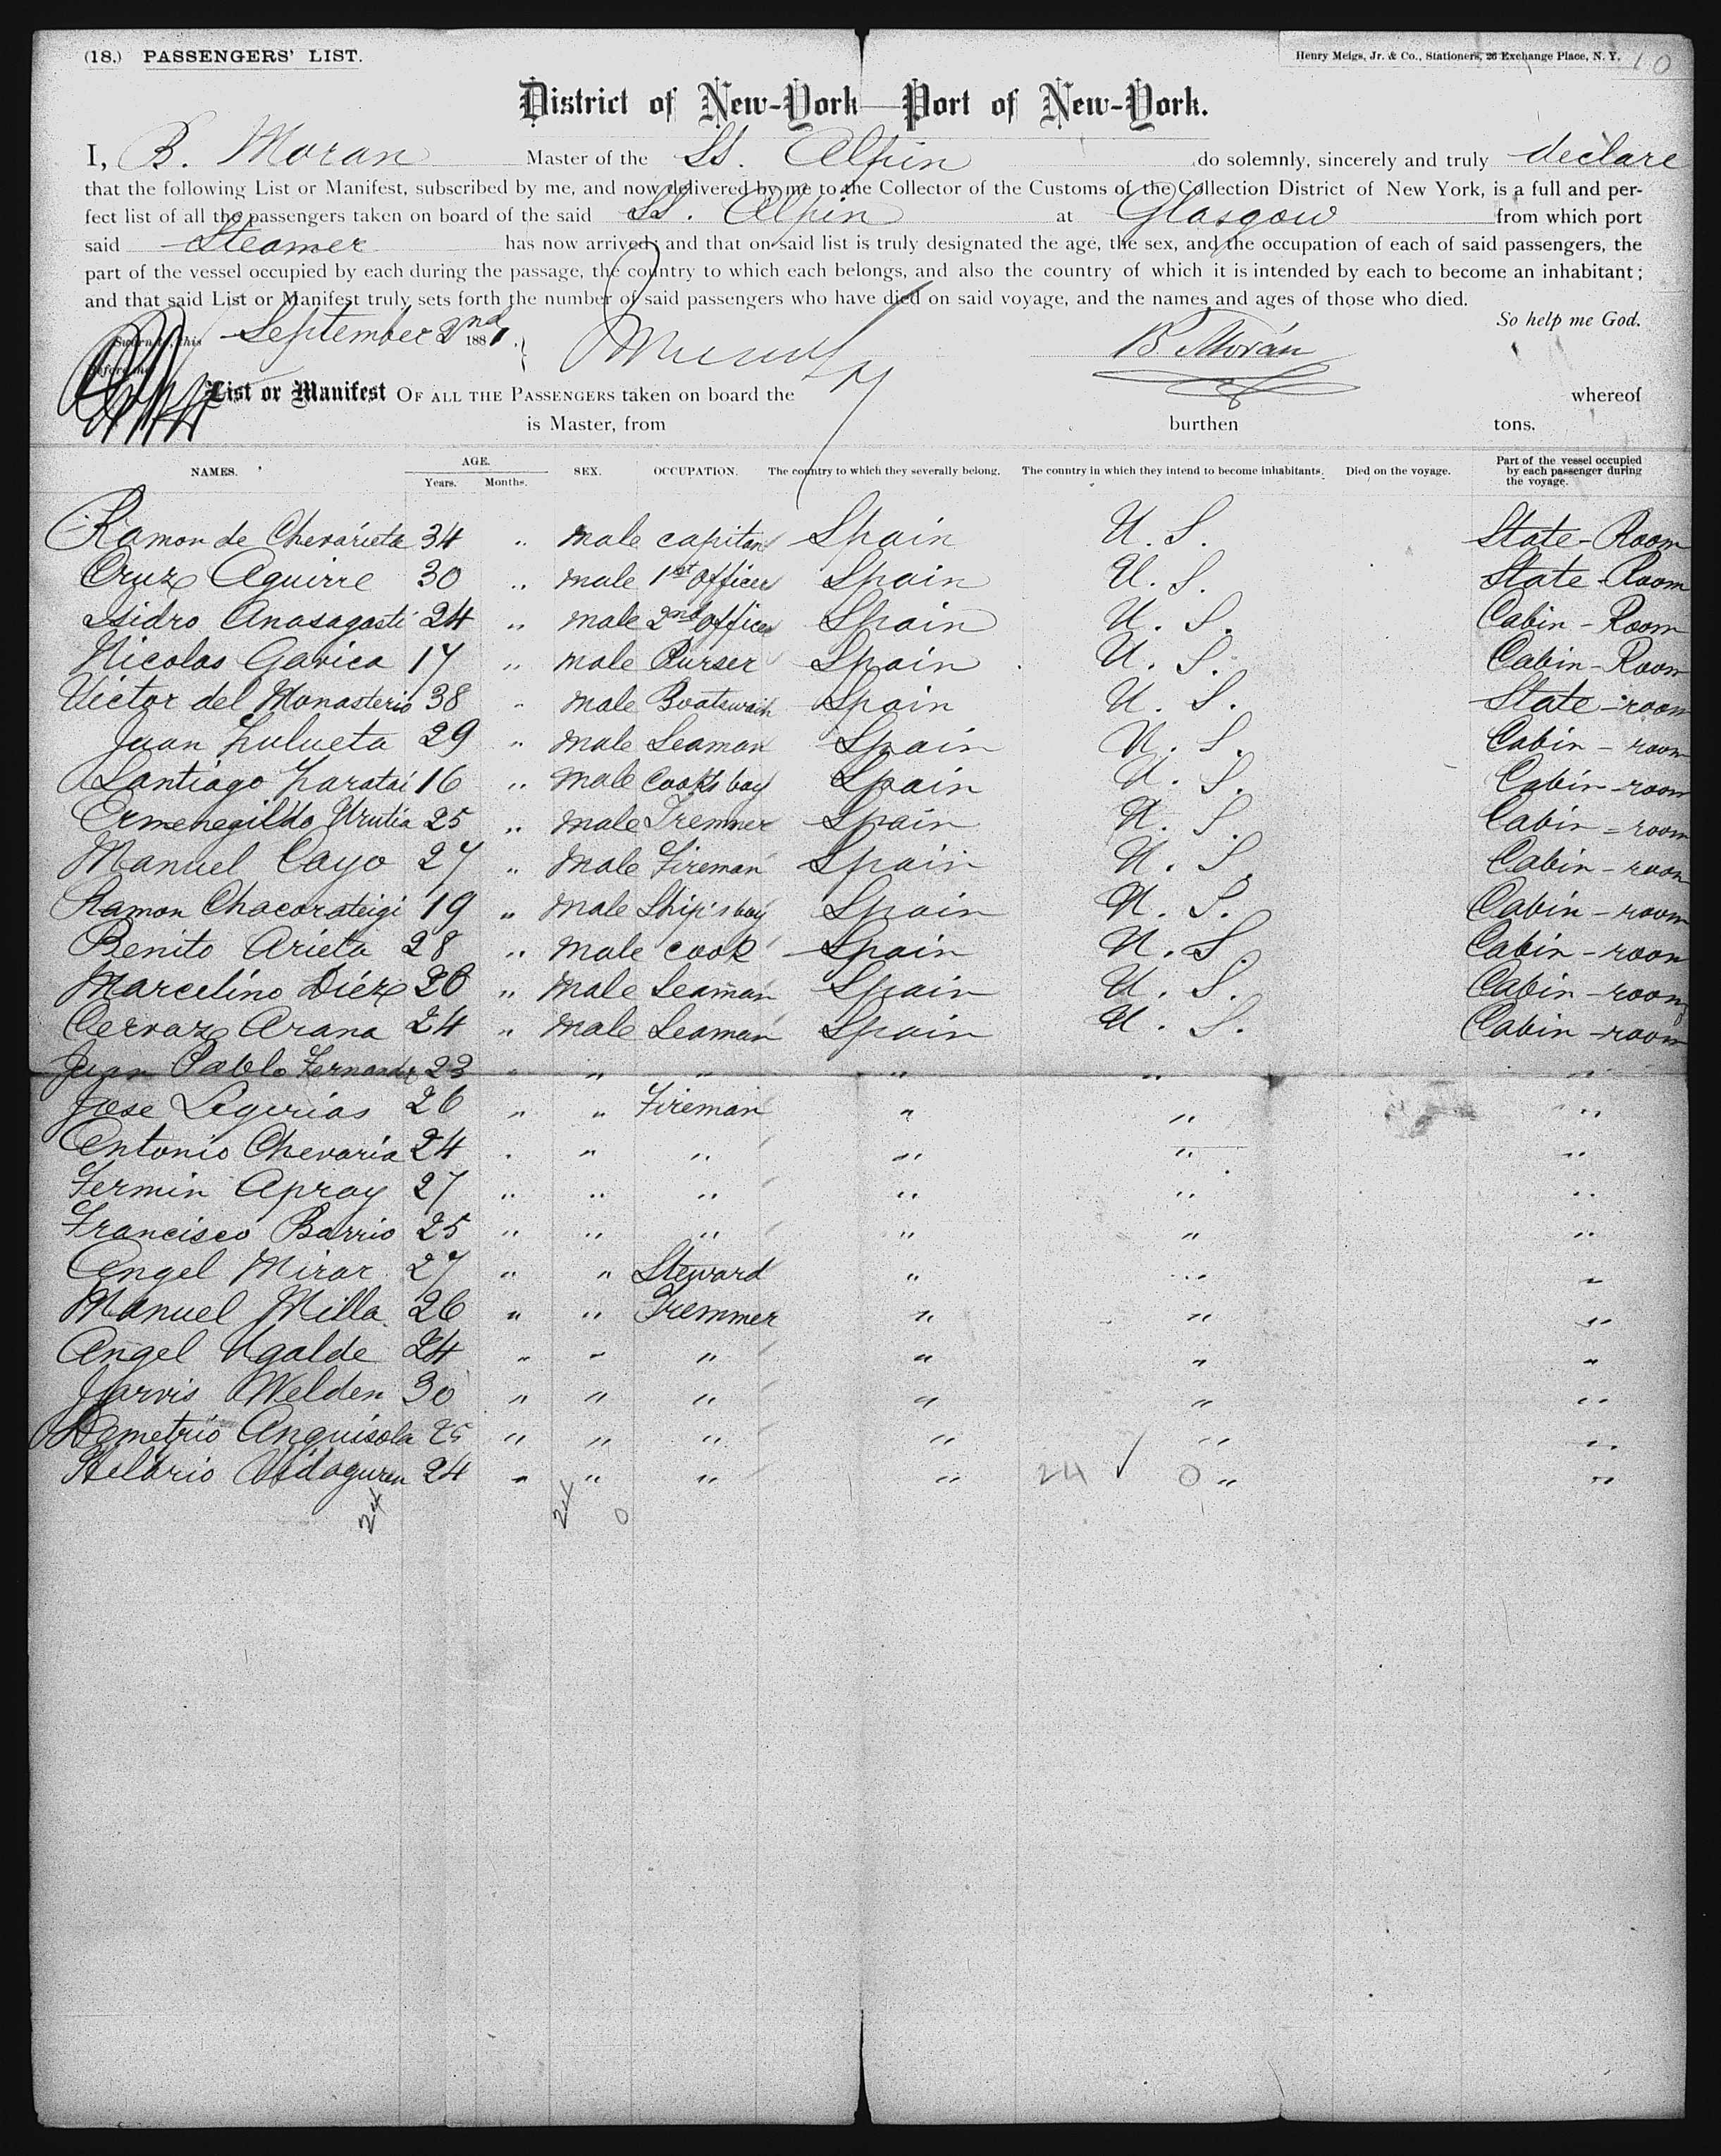 (18.) PASSENGERS' LIST.
Henry Meigs, Jr. & Co., Stationers, 26 Exchange Place, N. Y. 10
District of New-York—Port of New-York.
I, B. Moran Master of the SS. Alpin do solemnly, sincerely and truly declare
that the following List or Manifest, subscribed by me, and now delivered by me to the Collector of the Customs of the Collection District of New York, is a full and per-
fect list of all the passengers taken on board of the said SS. Alpin at Glasgow from which port
said Steamer has now arrived; and that on said list is truly designated the age, the sex, and the occupation of each of said passengers, the
part of the vessel occupied by each during the passage, the country to which each belongs, and also the country of which it is intended by each to become an inhabitant;
and that said List or Manifest truly sets forth the number of said passengers who have died on said voyage, and the names and ages of those who died.
So help me God.
Sworn to, this September 2nd 188
before me B Moran
List or Manifest OF ALL THE PASSENGERS taken on board the whereof
is Master, from burthen tons.
NAMES. AGE. Years. Months. SEX. OCCUPATION. The country to which they severally belong. The country in which they intend to become inhabitants. Died on the voyage. Part of the vessel occupied by each passenger during the voyage.
Ramon de Chevarieta 34 " male capitan Spain U. S. State-Room
Cruz Aguirre 30 " male 1st officer Spain U. S. State Room
Isidro Anasagasti 24 " male 2nd officer Spain U. S. Cabin-Room
Nicolas Gavica 17 " male Purser Spain U. S. Cabin-Room
Victor del Monasterio 38 " male Boatswain Spain U. S. State-room
Juan Zulueta 29 " male Seaman Spain U. S. Cabin-room
Santiago Zaratai 16 " male Cook's boy Spain U. S. Cabin-room
Ermenegildo Urutia 25 " male Tremner Spain U. S. Cabin-room
Manuel Cayo 27 " male Fireman Spain U. S. Cabin-room
Ramon Chacorateigi 19 " male Ship's boy Spain U. S. Cabin-room
Benito Arieta 28 " male cook Spain U. S. Cabin-room
Marcelino Diéz 20 " male Seaman Spain U. S. Cabin-room
Cervaz Arana 24 " male Seaman Spain U. S. Cabin-room
Juan Pablo Fernandz 23 " " " " " "
Jose Legurias 26 " " Fireman " " "
Antonio Chevaria 24 " " " " " "
Fermin Apray 27 " " " " " "
Francisco Barrio 25 " " " " " "
Angel Mirar 27 " " Steward " " "
Manuel Milla 26 " " Tremmer " " "
Angel Ugalde 24 " " " " " "
Jarvis Welden 30 " " " " " "
Demetrio Anguisola 25 " " " " " "
Helario Vidaguren 24 " " " " 24 ✓ 0 " "
24 24 0